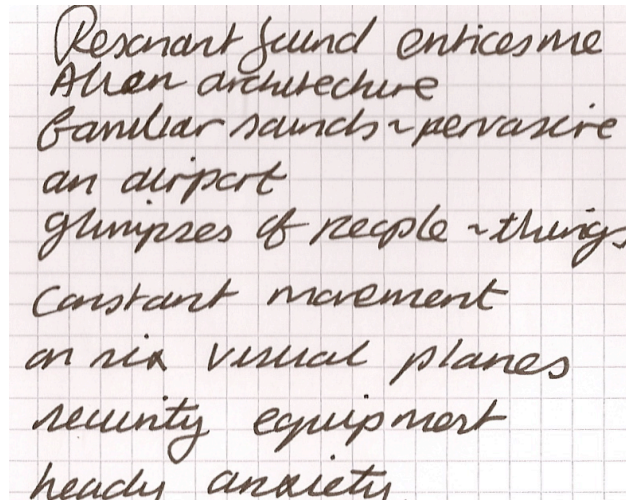 Resonant sound entices me
Alien architecture
familiar sounds ~ pervasive
an airport
glimpses of people ~ things
constant movement
on six visual planes
security equipment
heady anxiety